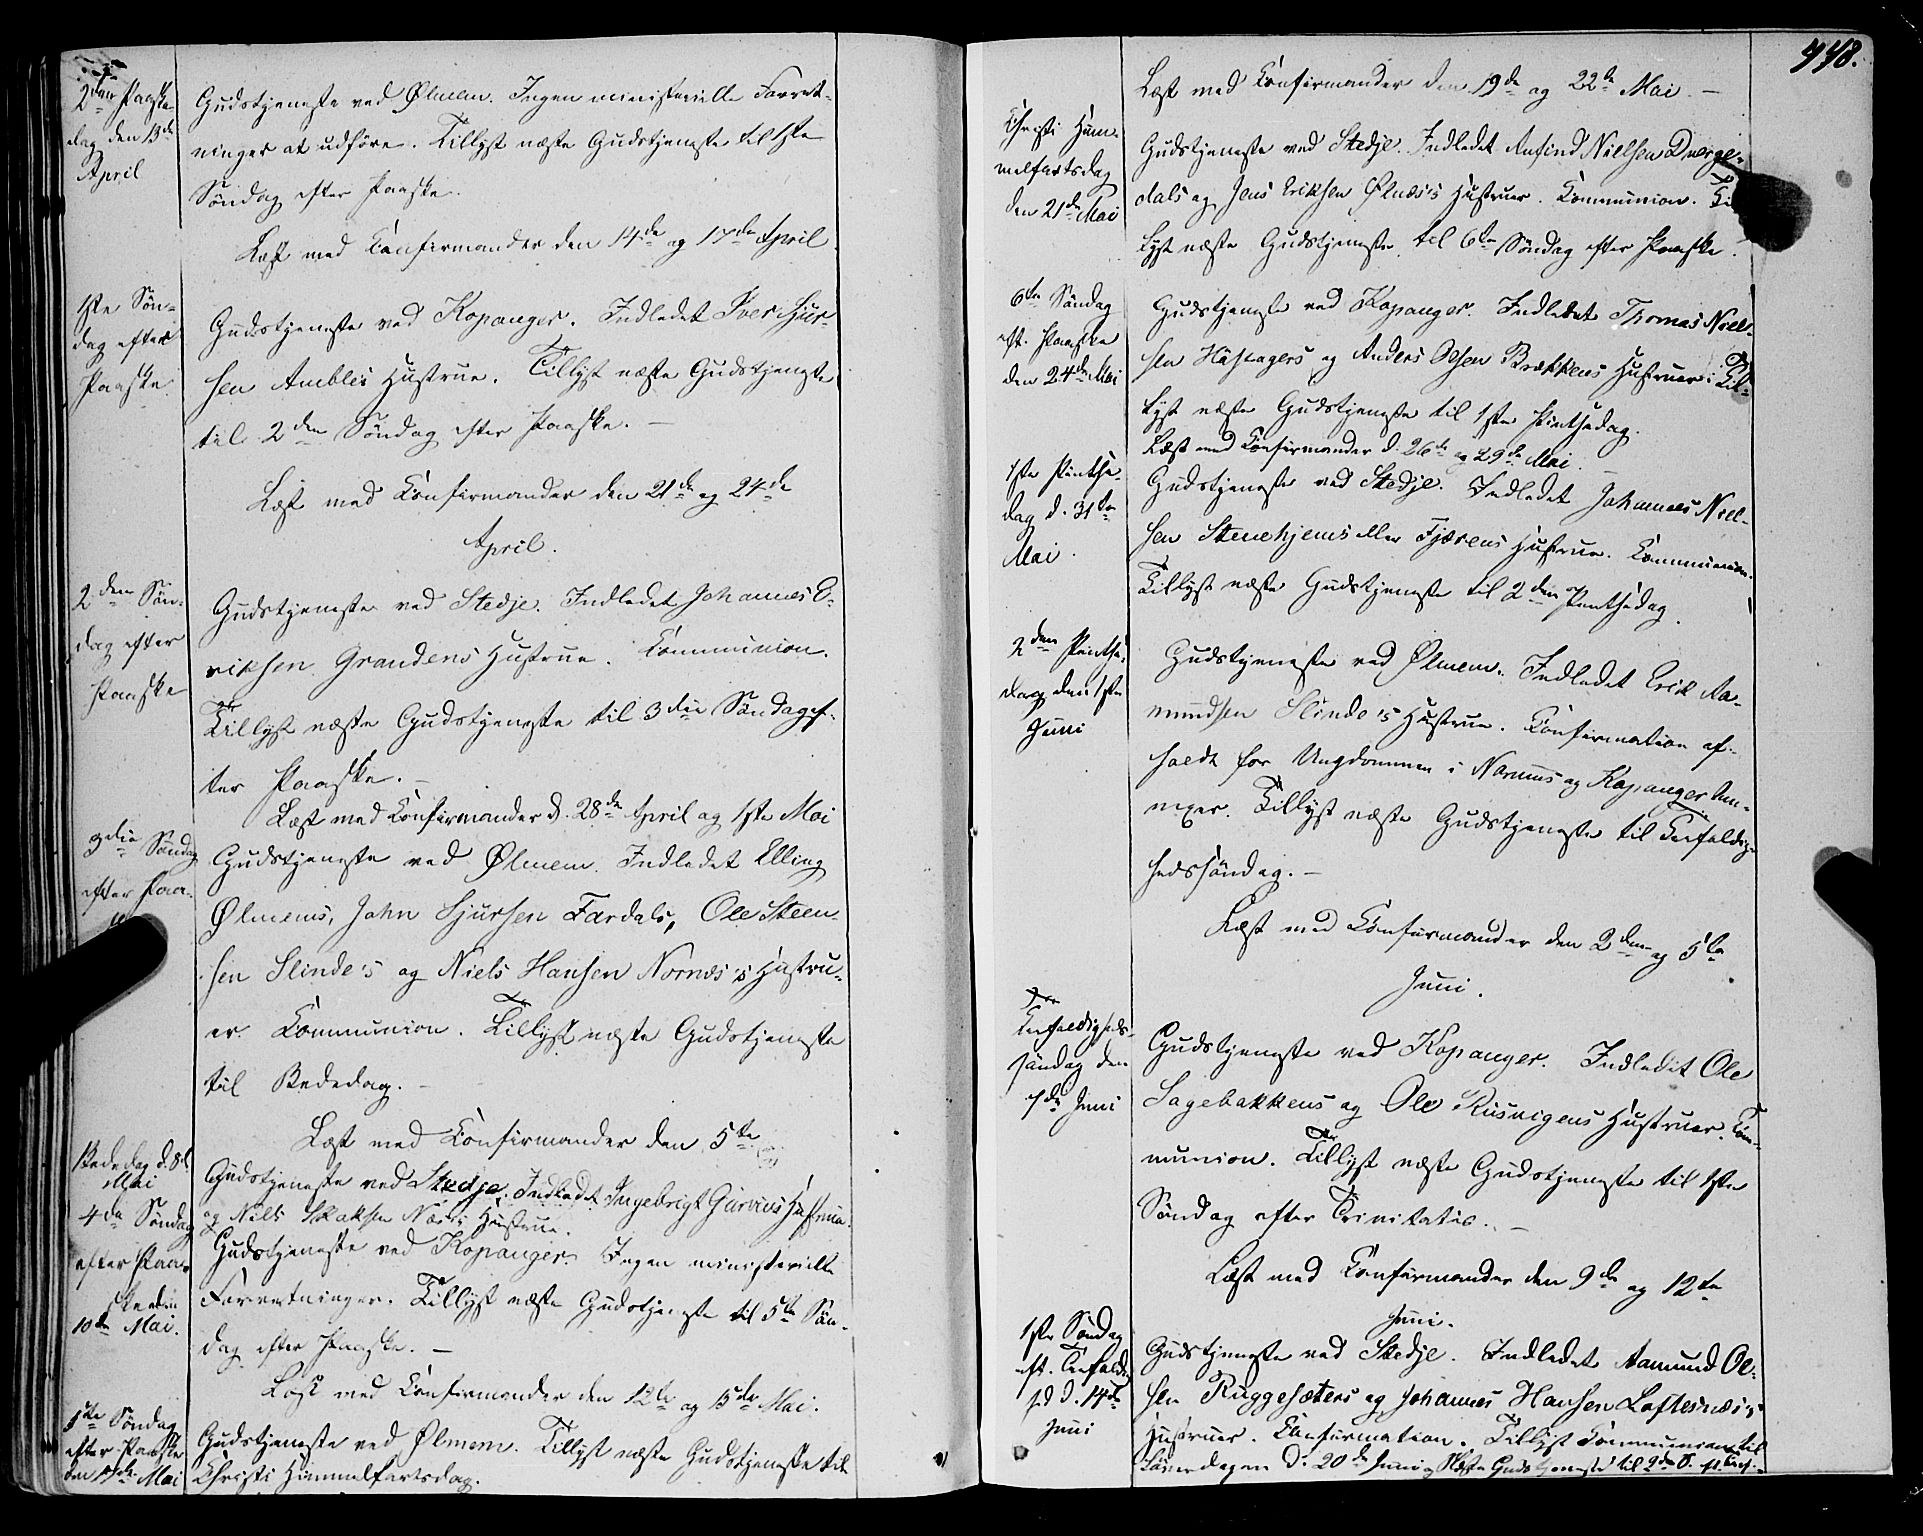 2den Paaske
dag den 13de
April
Gudstjeneste ved Ølmem. Ingen ministerielle Forret-
ninger at udføre. Tillyst næste Gudstjeneste til 1ste
Søndag efter Paaske.
Læst med Confirmander den 14de og 17de April
1ste Søn-
dag efter
Paaske
Gudstjeneste ved Kopanger. Indledet Iver Sjur-
sen Ambles Hustrue. Tillyst næste Gudstjeneste
til 2den Søndag efter Paaske. —
Læst med Confirmander den 21de og 24de
April.
2den Søn-
dag efter
Paaske
Gudstjeneste ved Stedje. Indledet Johannes E-
riksen Grandens Hustrue. Communion.
Tillyst næste Gudstjeneste til 3die Søndag ef-
ter Paaske. —
Læst med Confirmander d. 28de April og 1ste Mai
3die Søndag
efter Paa-
Gudstjeneste ved Ølmem. Indledet Elling
Ølmems, John Sjursen Fardals, Ole Steen-
sen Slinde's og Niels Hansen Nornæs's Hustru-
er. Communion. Tillyst næste Gudstjeneste
til Bededag. —
Læst med Confirmander den 5te
Bededag d. 8de
Mai
Gudstjeneste ved Stedje. Indledet Ingebrigt Hustrue
og Niels Hustrue.
4de Søndag
efter Paa-
ske den
10de Mai.
Gudstjeneste ved Kopanger. Ingen ministerielle
Forretninger. Tillyst næste Gudstjeneste til 5te Søn-
dag efter Paaske. —
Læst med Confirmander den 12te og 15de Mai.
5te Søndag
efter Paaske
den 17de Mai
Gudstjeneste ved Ølmem. Tillyst næste Gudstjeneste til
Christi Himmelfartsdag.
448.
Læst med Confirmander den 19de og 22de Mai. —
Christi Him-
melfartsdag
den 21de Mai
Gudstjeneste ved Stedje. Indledet Anfind Nielsen Dverge-
dals og Jens Eriksen Ølnæs's Hustruer. Communion. Til-
lyst næste Gudstjeneste til 6te Søndag efter Paaske.
6te Søndag
eft. Paaske
den 24de Mai
Gudstjeneste ved Kopanger. Indledet Thomas Niel-
sen Husagers og Anders Olsen Brækkens Hustruer. Til-
lyst næste Gudstjeneste til 1ste Pintsedag.
Læst med Confirmander d. 26de og 29de Mai.
1ste Pintse-
dag d. 31te
Mai.
Gudstjeneste ved Stedje. Indledet Johannes Niel-
sen Stenehjems eller Fjærens Hustrue. Communion.
Tillyst næste Gudstjeneste til 2den Pintsedag.
2den Pintse-
dag den 1ste
Juni
Gudstjeneste ved Ølmem. Indledet Erik Aa-
mundsen Slinde's Hustrue. Confirmation af-
holdt for Ungdommen i Nornums og Kopanger An-
nexer. Tillyst næste Gudstjeneste til Trefoldig-
hedssøndag. —
Læst med Confirmander den 2den og 5te
Juni.
Trefoldigheds-
søndag den
7de Juni
Gudstjeneste ved Kopanger. Indledet Ole
Sagebakkens og Ole Riisvigens Hustruer. Com-
munion. Tillyst næste Gudstjeneste til 1ste
Søndag efter Trinitatis. —
Læst med Confirmander den 9de og 12te
Juni.
1ste Søndag
eft. Trefoldig-
hd d. 14de
Juni
Gudstjeneste ved Stedje. Indledet Aamund Ol-
sen Ruggesæters og Johannes Hansen Loftesnæs's
Hustruer. Confirmation. Tillyst Communion til
Løverdagen d. 20de Juni og Næste Gudstjeneste til 2den S. eft. Tref.